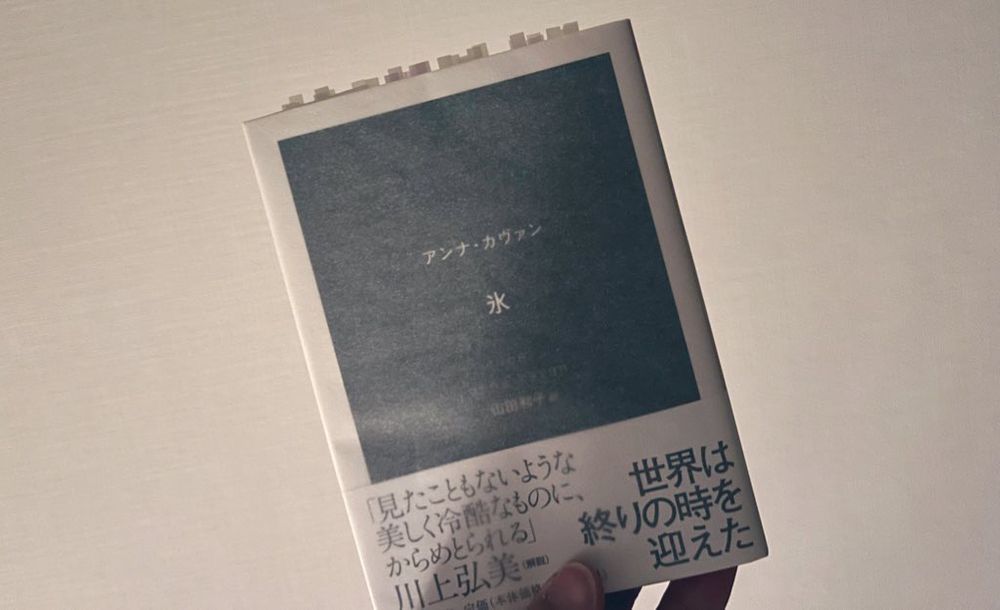 アンナ・カヴァン
氷
山田和子 訳
「見たこともないような
美しく冷酷なものに、
からめとられる」
川上弘美(解説)
定価(本体価格
世界は
終りの時を
迎えた